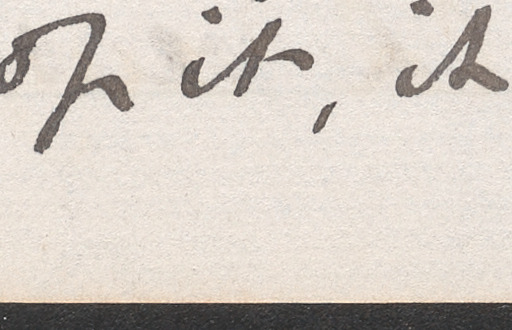 of it, it